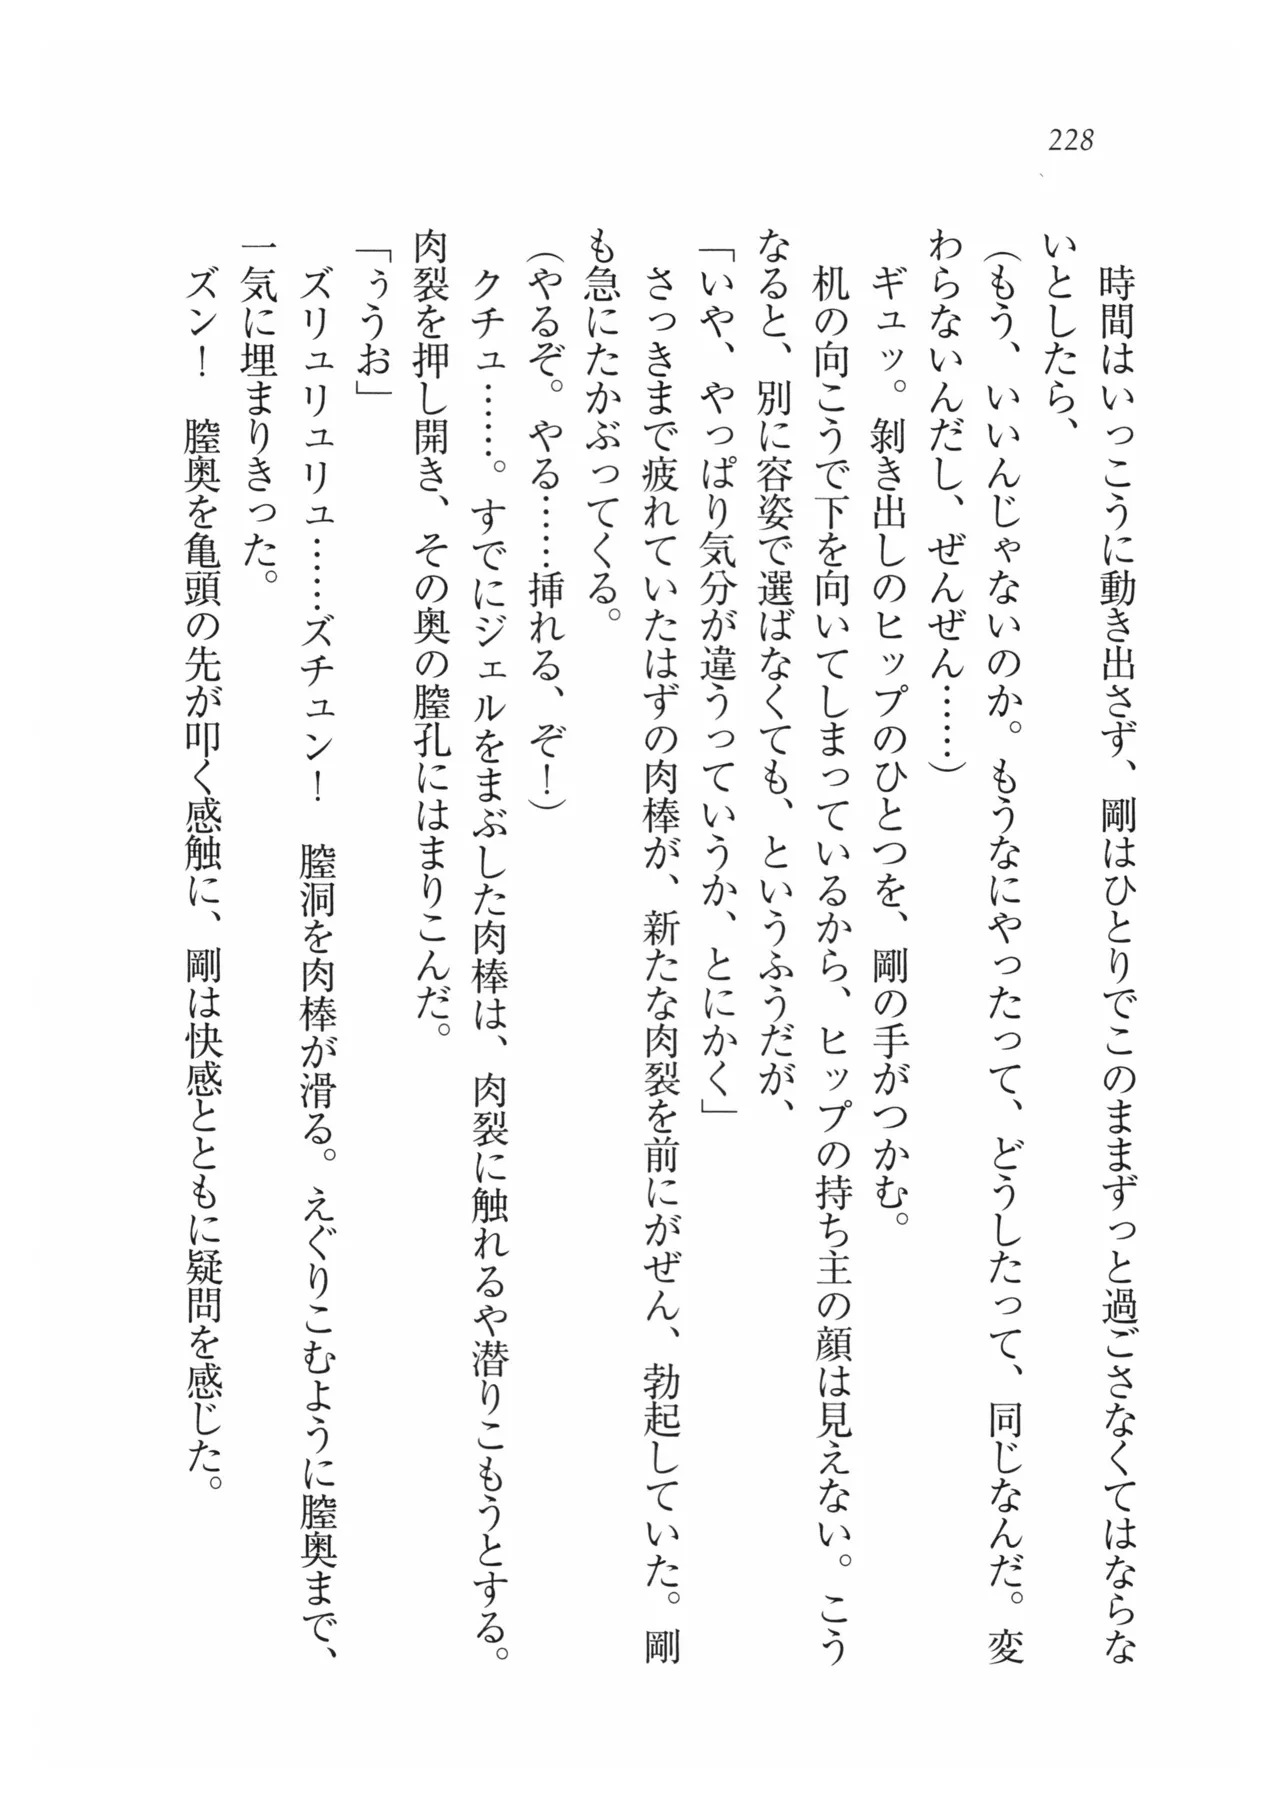 228
時間はいっこうに動き出さず、剛はひとりでこのままずっと過ごさなくてはならな
いとしたら、
(もう、いいんじゃないのか。もうなにやったって、どうしたって、同じなんだ。変
わらないんだし、ぜんぜん……)
ギュッ。剝き出しのヒップのひとつを、剛の手がつかむ。
机の向こうで下を向いてしまっているから、ヒップの持ち主の顔は見えない。こう
なると、別に容姿で選ばなくても、というふうだが、
「いや、やっぱり気分が違うっていうか、とにかく」
さっきまで疲れていたはずの肉棒が、新たな肉裂を前にがぜん、勃起していた。剛
も急にたかぶってくる。
(やるぞ。やる……挿れる、ぞ!)
クチュ……。すでにジェルをまぶした肉棒は、肉裂に触れるや潜りこもうとする。
肉裂を押し開き、その奥の膣孔にはまりこんだ。
「ぅうお」
ズリュリュリュ……ズチュン! 膣洞を肉棒が滑る。えぐりこむように膣奥まで、
一気に埋まりきった。
ズン! 膣奥を亀頭の先が叩く感触に、剛は快感とともに疑問を感じた。